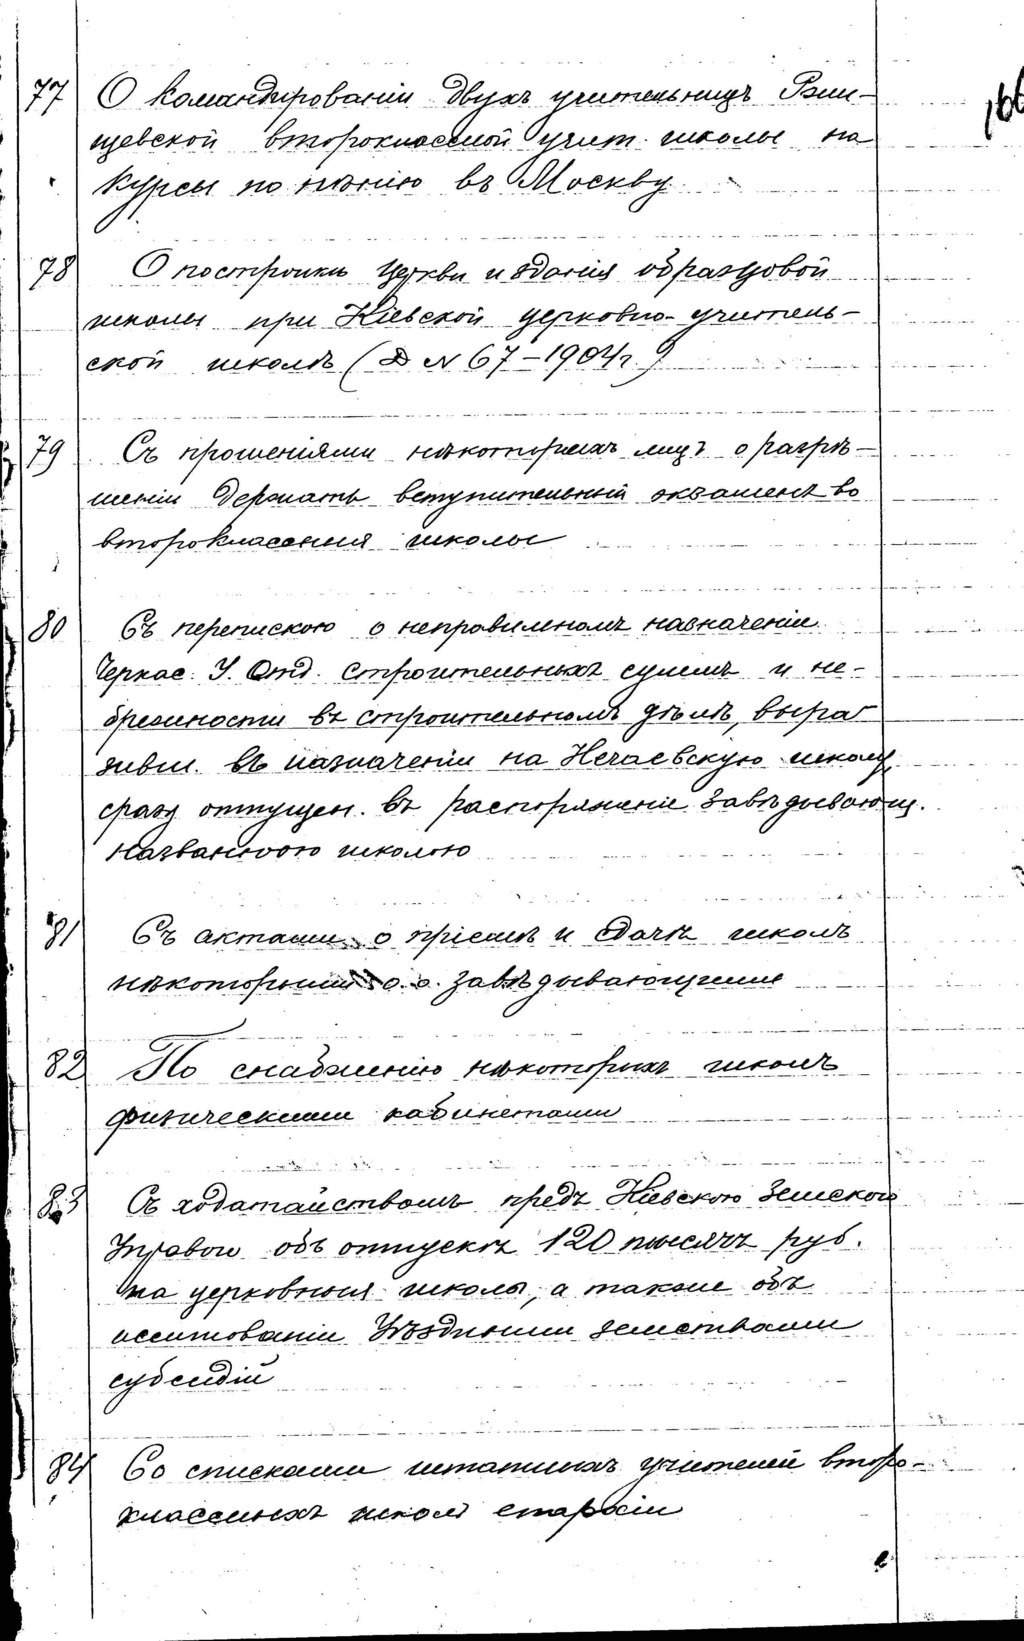 166
77 О командированіи двухъ учительницъ Ржи-
щевской второклассной учит. школы на
курсы по пѣнію въ Москву
78 О постройкѣ церкви и зданія образцовой
школы при Кіевской церковно-учитель-
ской школѣ (Д № 67-1904 г)
79 Съ прошеніями нѣкоторыхъ лицъ о разрѣ-
шеніи держать вступительный экзаменъ во
второклассныя школы
80 Съ перепискою о неправильномъ назначеніи
Черкас. У. Отд. строительныхъ суммъ и не-
брежности въ строительномъ дѣлѣ, выра-
зивш. въ назначеніи на Нечаевскую школу
сразу отпущен. въ распоряженіе завѣдывающ.
названною школою
81 Съ актами о пріемѣ и сдачѣ школъ
нѣкоторыми о.о. завѣдывающими
82 По снабженію нѣкоторыхъ школъ
физическими кабинетами
83 Съ ходатайствомъ предъ Кіевскою Земскою
Управою объ отпускѣ 120 тысячъ руб.
на церковныя школы, а также объ
ассигнованіи Уѣздными земствами
субсидій
84 Со списками штатныхъ учителей второ-
классныхъ школъ епархіи